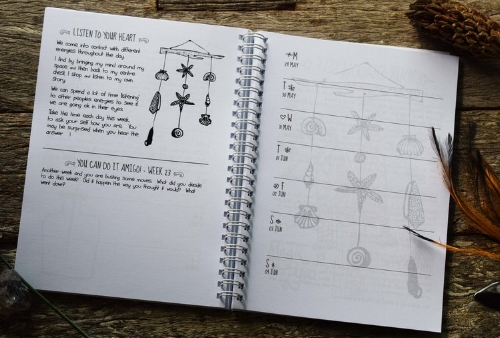 LISTEN TO YOUR HEART
We come into contact with different
energies throughout the day.
I find by bringing my mind around my
space and then back to my centre
chest, I stop and listen to my own
story.
We can spend a lot of time listening
to other peoples energies to see if
we are going ok in their eyes.
Take the time each day this week,
to ask your self how you are. You
may be surprised when you hear the
answer :)
YOU CAN DO IT AMIGO! - WEEK 23
Another week and you are busting some moves. What did you decide
to do this week? Did it happen the way you thought it would? What
went down?
M
29 MAY
T
30 MAY
W
31 MAY
T
01 JUN
F
02 JUN
S
03 JUN
S
04 JUN